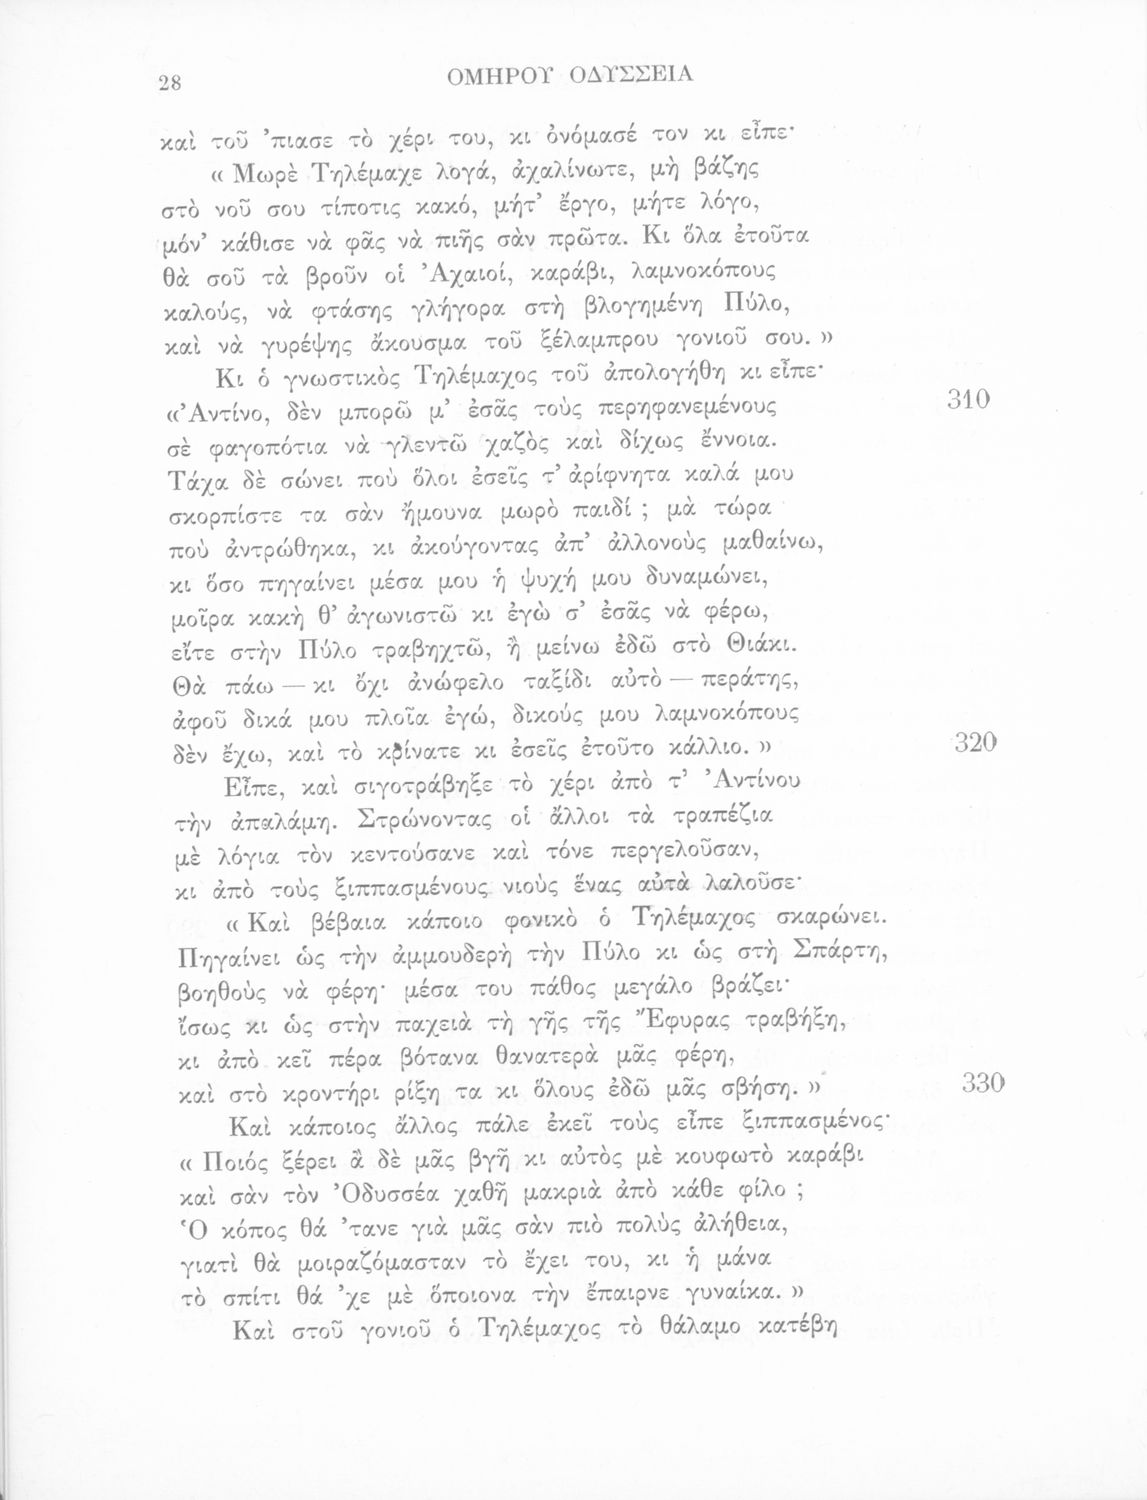 28
ΟΜΗΡΟΥ ΟΔΥΣΣΕΙΑ
καὶ τοῦ ’πιασε τὸ χέρι του, κι ὀνόμασέ τον κι εἶπε·
« Μωρὲ Τηλέμαχε λογά, ἀχαλίνωτε, μὴ βάζῃς
στὸ νοῦ σου τίποτις κακό, μήτ’ ἔργο, μήτε λόγο,
μόν’ κάθισε νὰ φᾶς νὰ πιῇς σὰν πρῶτα. Κι ὅλα ἐτοῦτα
θὰ σοῦ τὰ βροῦν οἱ Ἀχαιοί, καράβι, λαμνοκόπους
καλούς, νὰ φτάσῃς γλήγορα στὴ βλογημένη Πύλο,
καὶ νὰ γυρέψῃς ἄκουσμα τοῦ ξέλαμπρου γονιοῦ σου. »
Κι ὁ γνωστικὸς Τηλέμαχος τοῦ ἀπολογήθη κι εἶπε·
«Ἀντίνο, δὲν μπορῶ μ’ ἐσᾶς τοὺς περηφανεμένους
310
σὲ φαγοπότια νὰ γλεντῶ χαζὸς καὶ δίχως ἔννοια.
Τάχα δὲ σώνει ποὺ ὅλοι ἐσεῖς τ’ ἀρίφνητα καλά μου
σκορπίστε τα σὰν ἤμουνα μωρὸ παιδί ; μὰ τώρα
ποὺ ἀντρώθηκα, κι ἀκούγοντας ἀπ’ ἀλλονοὺς μαθαίνω,
κι ὅσο πηγαίνει μέσα μου ἡ ψυχή μου δυναμώνει,
μοῖρα κακὴ θ’ ἀγωνιστῶ κι ἐγὼ σ’ ἐσᾶς νὰ φέρω,
εἴτε στὴν Πύλο τραβηχτῶ, ἢ μείνω ἐδῶ στὸ Θιάκι.
Θὰ πάω — κι ὄχι ἀνώφελο ταξίδι αὐτὸ — περάτης,
ἀφοῦ δικά μου πλοῖα ἐγώ, δικούς μου λαμνοκόπους
δὲν ἔχω, καὶ τὸ κρίνατε κι ἐσεῖς ἐτοῦτο κάλλιο. »
320
Εἶπε, καὶ σιγοτράβηξε τὸ χέρι ἀπὸ τ’ Ἀντίνου
τὴν ἀπαλάμη. Στρώνοντας οἱ ἄλλοι τὰ τραπέζια
μὲ λόγια τὸν κεντούσανε καὶ τόνε περγελοῦσαν,
κι ἀπὸ τοὺς ξιππασμένους νιοὺς ἕνας αὐτὰ λαλοῦσε·
« Καὶ βέβαια κάποιο φονικὸ ὁ Τηλέμαχος σκαρώνει.
Πηγαίνει ὡς τὴν ἀμμουδερὴ τὴν Πύλο κι ὡς στὴ Σπάρτη,
βοηθοὺς νὰ φέρῃ· μέσα του πάθος μεγάλο βράζει·
ἴσως κι ὡς στὴν παχειὰ τὴ γῆς τῆς Ἔφυρας τραβήξῃ,
κι ἀπὸ κεῖ πέρα βότανα θανατερὰ μᾶς φέρῃ,
καὶ στὸ κροντήρι ρίξῃ τα κι ὅλους ἐδῶ μᾶς σβήσῃ. »
330
Καὶ κάποιος ἄλλος πάλε ἐκεῖ τοὺς εἶπε ξιππασμένος·
« Ποιός ξέρει ἂ δὲ μᾶς βγῇ κι αὐτὸς μὲ κουφωτὸ καράβι
καὶ σὰν τὸν Ὀδυσσέα χαθῇ μακριὰ ἀπὸ κάθε φίλο ;
Ὁ κόπος θά ’τανε γιὰ μᾶς σὰν πιὸ πολὺς ἀλήθεια,
γιατὶ θὰ μοιραζόμασταν τὸ ἔχει του, κι ἡ μάνα
τὸ σπίτι θά ’χε μὲ ὅποιονα τὴν ἔπαιρνε γυναίκα. »
Καὶ στοῦ γονιοῦ ὁ Τηλέμαχος τὸ θάλαμο κατέβη